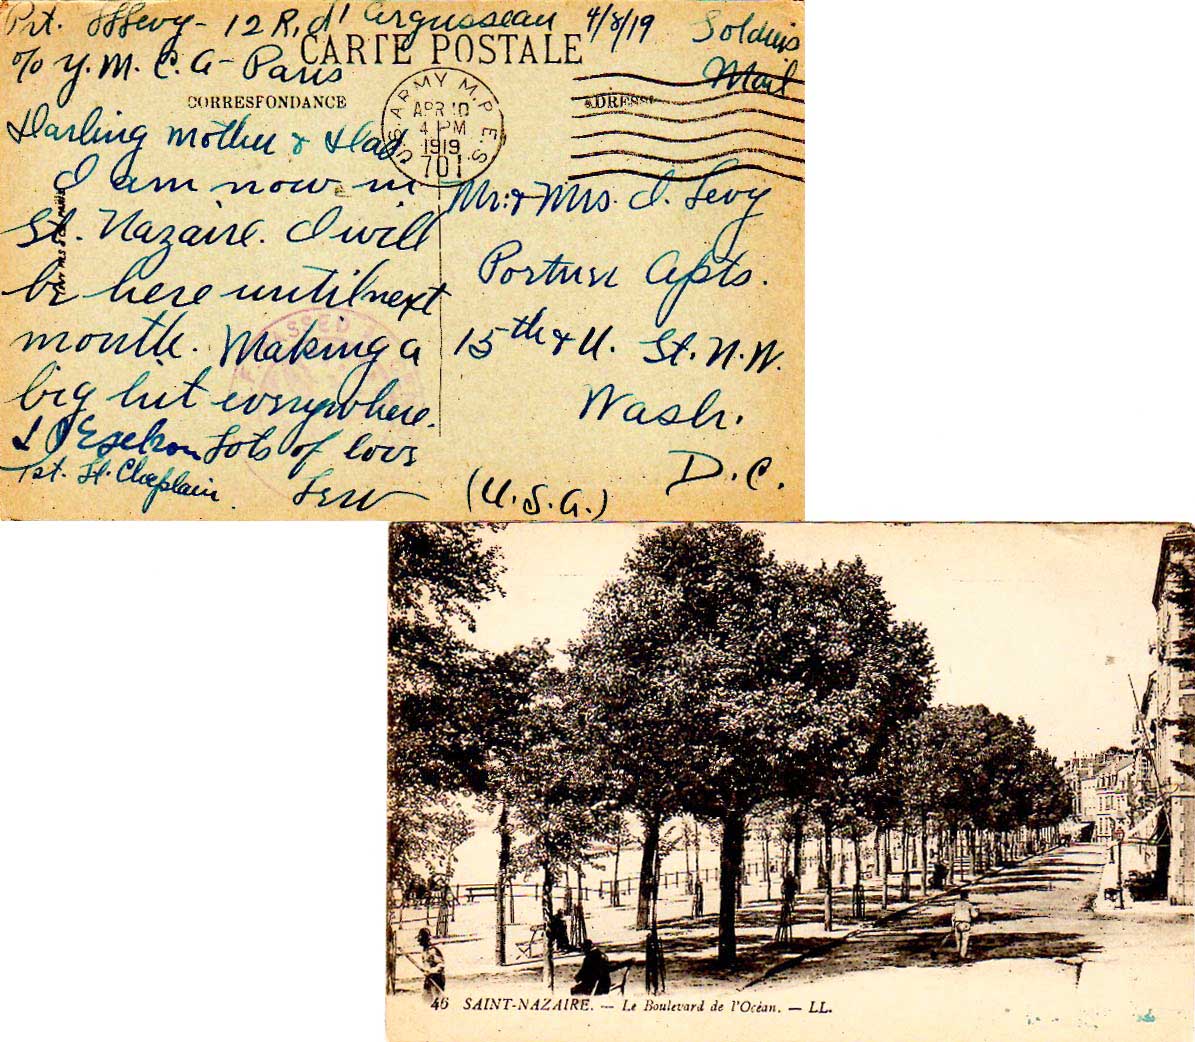 Pvt. Levy - 12 R. d'Argusseau 4/8/19 Soldiers
c/o Y.M.C.A - Paris Mail
CARTE POSTALE
CORRESPONDANCE
ADRESSE
U.S. ARMY M.P.E.S.
APR 10
4 PM
1919
701
Darling Mother & Dad
I am now in
St. Nazaire. I will
be here until next
month. Making a
big hit everywhere.
Lots of love
Lew
1st. Lt. Chaplain
PASSED
Mr. & Mrs. I. Levy
Portner Apts.
15th & U. St. N.W.
Wash.
D.C.
(U.S.A.)
46 SAINT-NAZAIRE. — Le Boulevard de l'Océan. — LL.